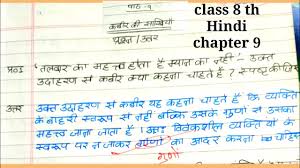 पाठ - 9
class 8 th
Hindi
chapter 9
कबीर की साखियाँ
प्रश्न / उत्तर
प्र०1 "तलवार का महत्व होता है म्यान का नहीं" - उक्त
उदाहरण से कबीर क्या कहना चाहते हैं ? स्पष्ट कीजिए
उत्तर उक्त उदाहरण से कबीर यह कहना चाहते हैं कि व्यक्ति
के बाहरी स्वरूप से नहीं बल्कि उसके गुणों से उसका
महत्व जाना जाता है। अतः विवेकशील व्यक्तियों के
स्वरूप पर न जाकर का आदर करना
गुणों